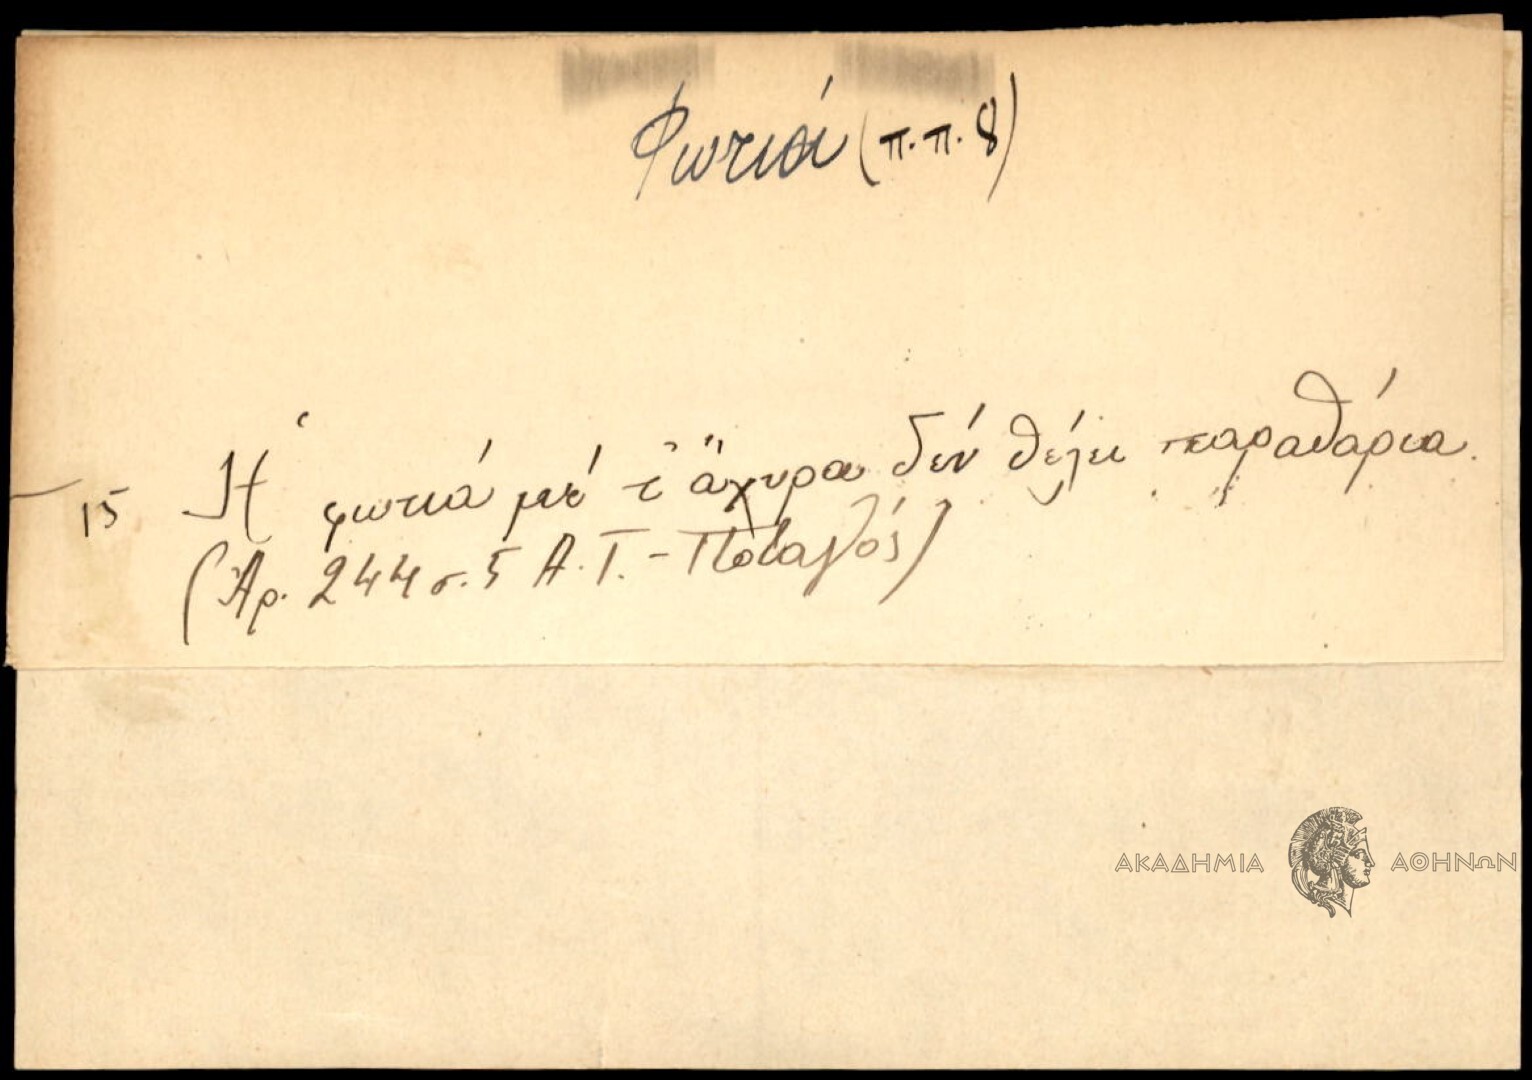 Φωτιά (π.π. 8)
15 Ἡ φωτιά μέ τ' ἄχυρα δέν θέλει παραθάρια.
(Ἀρ. 244 σ. 5 Α.Τ. - Ποταμός)
ΑΚΑΔΗΜΙΑ ΑΘΗΝΩΝ